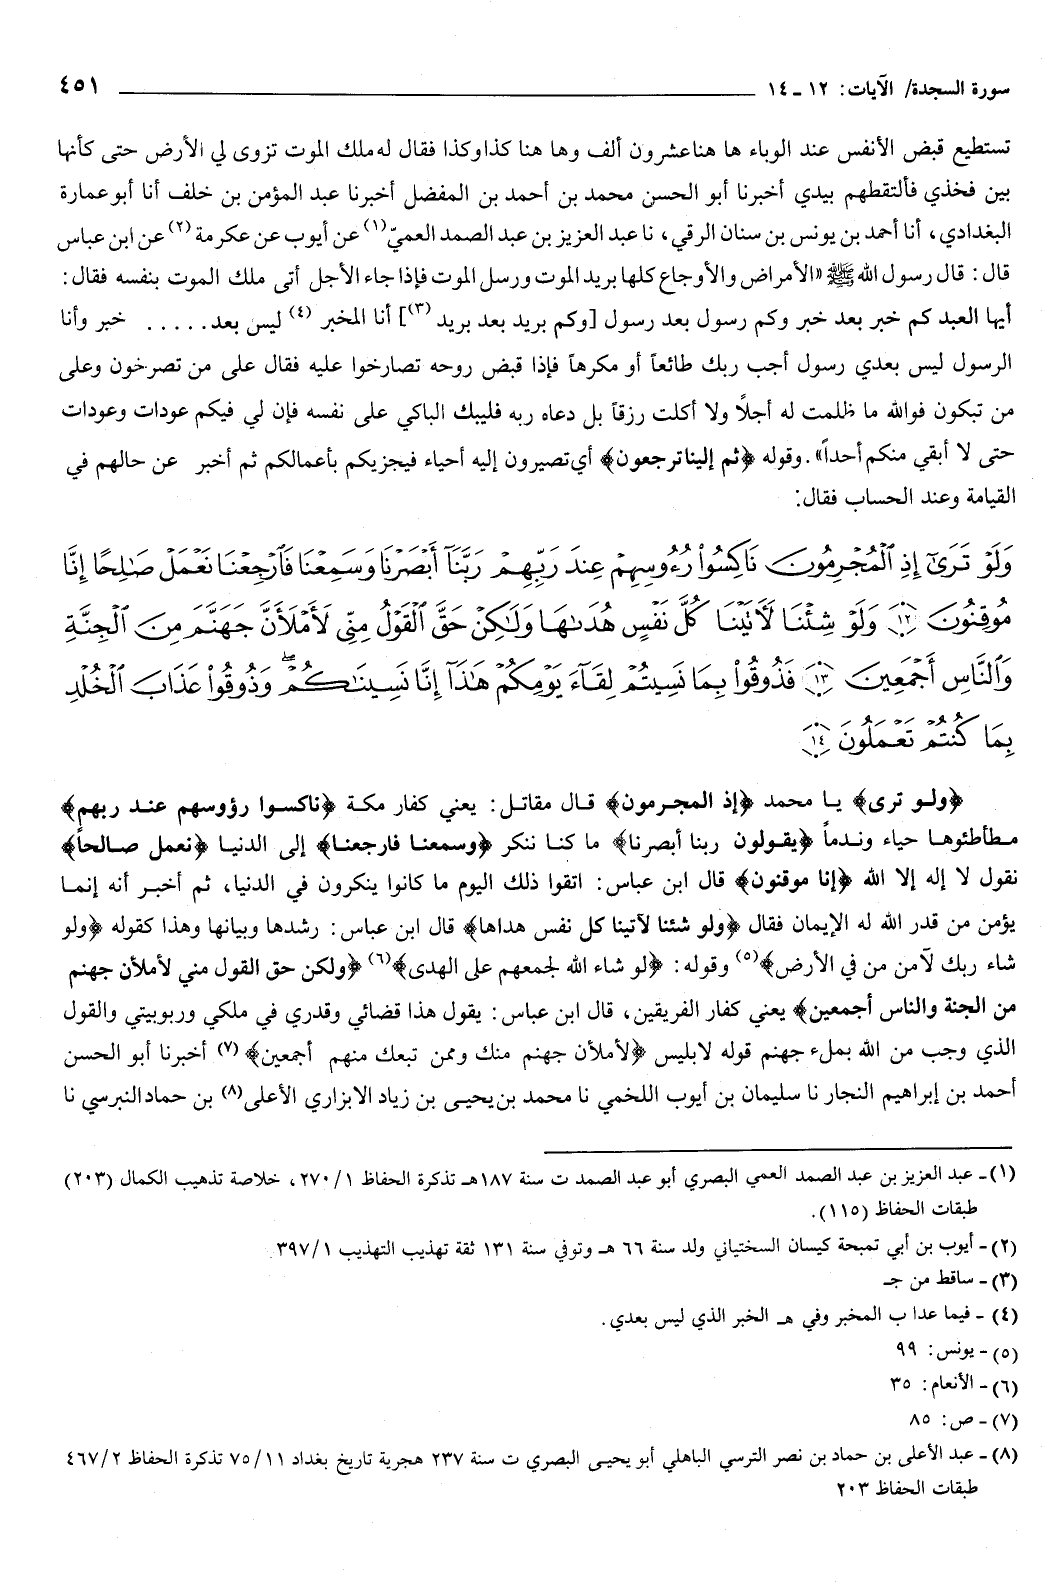 سورة السجدة/ الآيات: ١٢ ـ ١٤ ٤٥١
تستطيع قبض الأنفس عند الوباء ها هنا عشرون ألف وها هنا كذا وكذا فقال له ملك الموت تزوى لي الأرض حتى كأنها
بين فخذي فألتقطهم بيدي أخبرنا أبو الحسن محمد بن أحمد بن المفضل أخبرنا عبد المؤمن بن خلف أنا أبو عمارة
البغدادي، أنا أحمد بن يونس بن سنان الرقي، نا عبد العزيز بن عبد الصمد العميّ(١) عن أيوب عن عكرمة(٢) عن ابن عباس
قال: قال رسول الله ﷺ «الأمراض والأوجاع كلها بريد الموت ورسل الموت فإذا جاء الأجل أتى ملك الموت بنفسه فقال:
أيها العبد كم خبر بعد خبر وكم رسول بعد رسول [وكم بريد بعد بريد(٣)] أنا المخبر(٤) ليس بعد..... خبر وأنا
الرسول ليس بعدي رسول أجب ربك طائعاً أو مكرهاً فإذا قبض روحه تصارخوا عليه فقال على من تصرخون وعلى
من تبكون فوالله ما ظلمت له أجلًا ولا أكلت رزقاً بل دعاه ربه فليبك الباكي على نفسه فإن لي فيكم عودات وعودات
حتى لا أبقي منكم أحداً». وقوله ﴿ثم إلينا ترجعون﴾ أي تصيرون إليه أحياء فيجزيكم بأعمالكم ثم أخبر عن حالهم في
القيامة وعند الحساب فقال:
وَلَوْ تَرَىٰٓ إِذِ ٱلْمُجْرِمُونَ نَاكِسُوا۟ رُءُوسِهِمْ عِندَ رَبِّهِمْ رَبَّنَآ أَبْصَرْنَا وَسَمِعْنَا فَٱرْجِعْنَا نَعْمَلْ صَٰلِحًا إِنَّا
مُوقِنُونَ ١٢ وَلَوْ شِئْنَا لَءَاتَيْنَا كُلَّ نَفْسٍ هُدَىٰهَا وَلَٰكِنْ حَقَّ ٱلْقَوْلُ مِنِّى لَأَمْلَأَنَّ جَهَنَّمَ مِنَ ٱلْجِنَّةِ
وَٱلنَّاسِ أَجْمَعِينَ ١٣ فَذُوقُوا۟ بِمَا نَسِيتُمْ لِقَآءَ يَوْمِكُمْ هَٰذَآ إِنَّا نَسِينَٰكُمْ ۖ وَذُوقُوا۟ عَذَابَ ٱلْخُلْدِ
بِمَا كُنتُمْ تَعْمَلُونَ ١٤
﴿ولو ترى﴾ يا محمد ﴿إذ المجرمون﴾ قال مقاتل: يعني كفار مكة ﴿ناكسوا رؤوسهم عند ربهم﴾
مطأطئوها حياء وندماً ﴿يقولون ربنا أبصرنا﴾ ما كنا ننكر ﴿وسمعنا فارجعنا﴾ إلى الدنيا ﴿نعمل صالحاً﴾
نقول لا إله إلا الله ﴿إنا موقنون﴾ قال ابن عباس: اتقوا ذلك اليوم ما كانوا ينكرون في الدنيا، ثم أخبر أنه إنما
يؤمن من قدر الله له الإيمان فقال ﴿ولو شئنا لآتينا كل نفس هداها﴾ قال ابن عباس: رشدها وبيانها وهذا كقوله ﴿ولو
شاء ربك لآمن من في الأرض﴾(٥) وقوله: ﴿لو شاء الله لجمعهم على الهدى﴾(٦) ﴿ولكن حق القول مني لأملأن جهنم
من الجنة والناس أجمعين﴾ يعني كفار الفريقين، قال ابن عباس: يقول هذا قضائي وقدري في ملكي وربوبيتي والقول
الذي وجب من الله بملء جهنم قوله لابليس ﴿لأملأن جهنم منك وممن تبعك منهم أجمعين﴾(٧) أخبرنا أبو الحسن
أحمد بن إبراهيم النجار نا سليمان بن أيوب اللخمي نا محمد بن يحيى بن زياد الابزاري الأعلى(٨) بن حماد النبرسي نا
(١) ـ عبد العزيز بن عبد الصمد العمي البصري أبو عبد الصمد ت سنة ١٨٧هـ تذكرة الحفاظ ٢٧٠/١، خلاصة تذهيب الكمال (٢٠٣)
طبقات الحفاظ (١١٥).
(٢) ـ أيوب بن أبي تمبحة كيسان السختياني ولد سنة ٦٦ هـ وتوفي سنة ١٣١ ثقة تهذيب التهذيب ٣٩٧/١
(٣) ـ ساقط من جـ
(٤) ـ فيما عدا ب المخبر وفي هـ الخبر الذي ليس بعدي.
(٥) ـ يونس: ٩٩
(٦) ـ الأنعام: ٣٥
(٧) ـ ص: ٨٥
(٨) ـ عبد الأعلى بن حماد بن نصر الترسي الباهلي أبو يحيى البصري ت سنة ٢٣٧ هجرية تاريخ بغداد ٧٥/١١ تذكرة الحفاظ ٤٦٧/٢
طبقات الحفاظ ٢٠٣